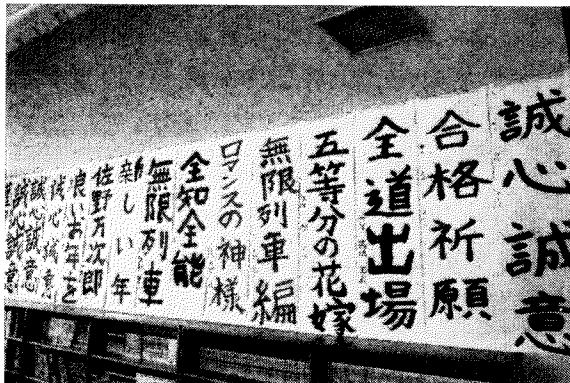 誠心誠意
合格祈願
全道出場
五等分の花嫁
無限列車編
ロマンスの神様
全知全能
無限列車
新しい年
佐野万次郎
良いお年を
誠心誠意
誠心誠意
誠心誠意